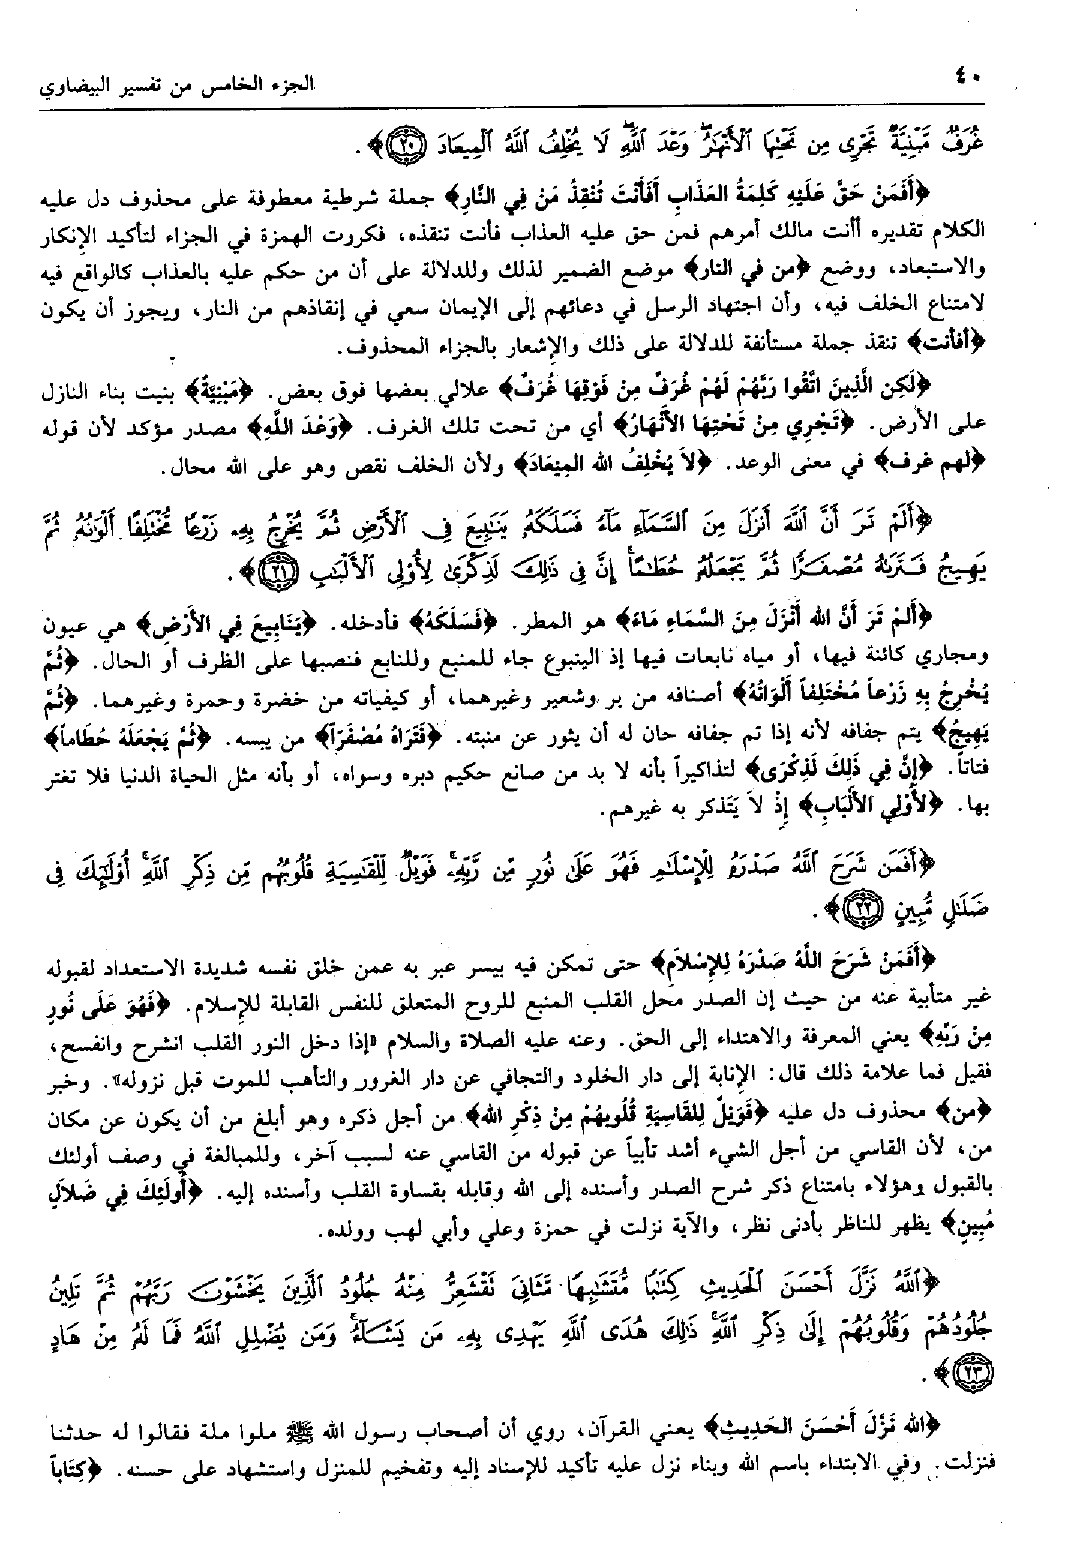 ٤٠
الجزء الخامس من تفسير البيضاوي
غُرَفٌ مَّبْنِيَّةٌ تَجْرِي مِن تَحْتِهَا الْأَنْهَارُ وَعْدَ اللَّهِ لَا يُخْلِفُ اللَّهُ الْمِيعَادَ ٢٠﴾.
﴿أَفَمَنْ حَقَّ عَلَيْهِ كَلِمَةُ العَذَابِ أَفَأَنْتَ تُنْقِذُ مَنْ فِي النَّارِ﴾ جملة شرطية معطوفة على محذوف دل عليه
الكلام تقديره أأنت مالك أمرهم فمن حق عليه العذاب فأنت تنقذه، فكررت الهمزة في الجزاء لتأكيد الإنكار
والاستبعاد، ووضع ﴿من في النار﴾ موضع الضمير لذلك وللدلالة على أن من حكم عليه بالعذاب كالواقع فيه
لامتناع الخلف فيه، وأن اجتهاد الرسل في دعائهم إلى الإيمان سعي في إنقاذهم من النار، ويجوز أن يكون
﴿أفأنت﴾ تنقذ جملة مستأنفة للدلالة على ذلك والإشعار بالجزاء المحذوف.
﴿لَكِنِ الَّذِينَ اتَّقُوا رَبَّهُمْ لَهُمْ غُرَفٌ مِنْ فَوْقِهَا غُرَفٌ﴾ علالي بعضها فوق بعض. ﴿مَبْنِيَّةٌ﴾ بنيت بناء النازل
على الأرض. ﴿تَجْرِي مِنْ تَحْتِهَا الأَنْهَارُ﴾ أي من تحت تلك الغرف. ﴿وَعْدَ اللَّهِ﴾ مصدر مؤكد لأن قوله
﴿لهم غرف﴾ في معنى الوعد. ﴿لاَ يُخْلِفُ الله المِيعَادَ﴾ ولأن الخلف نقص وهو على الله محال.
﴿أَلَمْ تَرَ أَنَّ اللَّهَ أَنزَلَ مِنَ السَّمَاءِ مَاءً فَسَلَكَهُ يَنَابِيعَ فِي الْأَرْضِ ثُمَّ يُخْرِجُ بِهِ زَرْعًا مُّخْتَلِفًا أَلْوَانُهُ ثُمَّ
يَهِيجُ فَتَرَاهُ مُصْفَرًّا ثُمَّ يَجْعَلُهُ حُطَامًا إِنَّ فِي ذَلِكَ لَذِكْرَى لِأُوْلِي الْأَلْبَابِ ٢١﴾.
﴿أَلَمْ تَرَ أَنَّ الله أَنْزَلَ مِنَ السَّمَاءِ مَاءً﴾ هو المطر. ﴿فَسَلَكَهُ﴾ فأدخله. ﴿يَنَابِيعَ فِي الأَرْضِ﴾ هي عيون
ومجاري كائنة فيها، أو مياه نابعات فيها إذ الينبوع جاء للمنبع وللنابع فنصبها على الظرف أو الحال. ﴿ثُمَّ
يُخْرِجُ بِهِ زَرْعاً مُخْتَلِفاً أَلْوَانُهُ﴾ أصنافه من بر وشعير وغيرهما، أو كيفياته من خضرة وحمرة وغيرهما. ﴿ثُمَّ
يَهِيجُ﴾ يتم جفافه لأنه إذا تم جفافه حان له أن يثور عن منبته. ﴿فَتَرَاهُ مُصْفَرّاً﴾ من يبسه. ﴿ثُمَّ يَجْعَلُهُ حُطَاماً﴾
فتاتاً. ﴿إِنَّ فِي ذَلِكَ لَذِكْرَى﴾ لتذاكيراً بأنه لا بد من صانع حكيم دبره وسواه، أو بأنه مثل الحياة الدنيا فلا تغتر
بها. ﴿لأُوْلِي الأَلْبَابِ﴾ إِذْ لاَ يَتَذكر به غيرهم.
﴿أَفَمَن شَرَحَ اللَّهُ صَدْرَهُ لِلْإِسْلَامِ فَهُوَ عَلَى نُورٍ مِّن رَّبِّهِ فَوَيْلٌ لِّلْقَاسِيَةِ قُلُوبُهُم مِّن ذِكْرِ اللَّهِ أُوْلَئِكَ فِي
ضَلَالٍ مُّبِينٍ ٢٢﴾.
﴿أَفَمَنْ شَرَحَ اللَّهُ صَدْرَهُ لِلإِسْلاَمِ﴾ حتى تمكن فيه بيسر عبر به عمن خلق نفسه شديدة الاستعداد لقبوله
غير متأبية عنه من حيث إن الصدر محل القلب المنبع للروح المتعلق للنفس القابلة للإسلام. ﴿فَهُوَ عَلَى نُورٍ
مِنْ رَبِّهِ﴾ يعني المعرفة والاهتداء إلى الحق. وعنه عليه الصلاة والسلام «إذا دخل النور القلب انشرح وانفسح،
فقيل فما علامة ذلك قال: الإنابة إلى دار الخلود والتجافي عن دار الغرور والتأهب للموت قبل نزوله». وخبر
﴿من﴾ محذوف دل عليه ﴿فَوَيْلٌ لِلقَاسِيَةِ قُلُوبُهُمْ مِنْ ذِكْرِ الله﴾ من أجل ذكره وهو أبلغ من أن يكون عن مكان
من، لأن القاسي من أجل الشيء أشد تأبياً عن قبوله من القاسي عنه لسبب آخر، وللمبالغة في وصف أولئك
بالقبول وهؤلاء بامتناع ذكر شرح الصدر وأسنده إلى الله وقابله بقساوة القلب وأسنده إليه. ﴿أُولَئِكَ فِي ضَلاَلٍ
مُبِينٍ﴾ يظهر للناظر بأدنى نظر، والآية نزلت في حمزة وعلي وأبي لهب وولده.
﴿اللَّهُ نَزَّلَ أَحْسَنَ الْحَدِيثِ كِتَابًا مُّتَشَابِهًا مَّثَانِيَ تَقْشَعِرُّ مِنْهُ جُلُودُ الَّذِينَ يَخْشَوْنَ رَبَّهُمْ ثُمَّ تَلِينُ
جُلُودُهُمْ وَقُلُوبُهُمْ إِلَى ذِكْرِ اللَّهِ ذَلِكَ هُدَى اللَّهِ يَهْدِي بِهِ مَن يَشَاءُ وَمَن يُضْلِلِ اللَّهُ فَمَا لَهُ مِنْ هَادٍ
٢٣﴾.
﴿الله نَزَّلَ أَحْسَنَ الحَدِيثِ﴾ يعني القرآن، روي أن أصحاب رسول الله ﷺ ملوا ملة فقالوا له حدثنا
فنزلت. وفي الابتداء باسم الله وبناء نزل عليه تأكيد للإسناد إليه وتفخيم للمنزل واستشهاد على حسنه. ﴿كِتَاباً